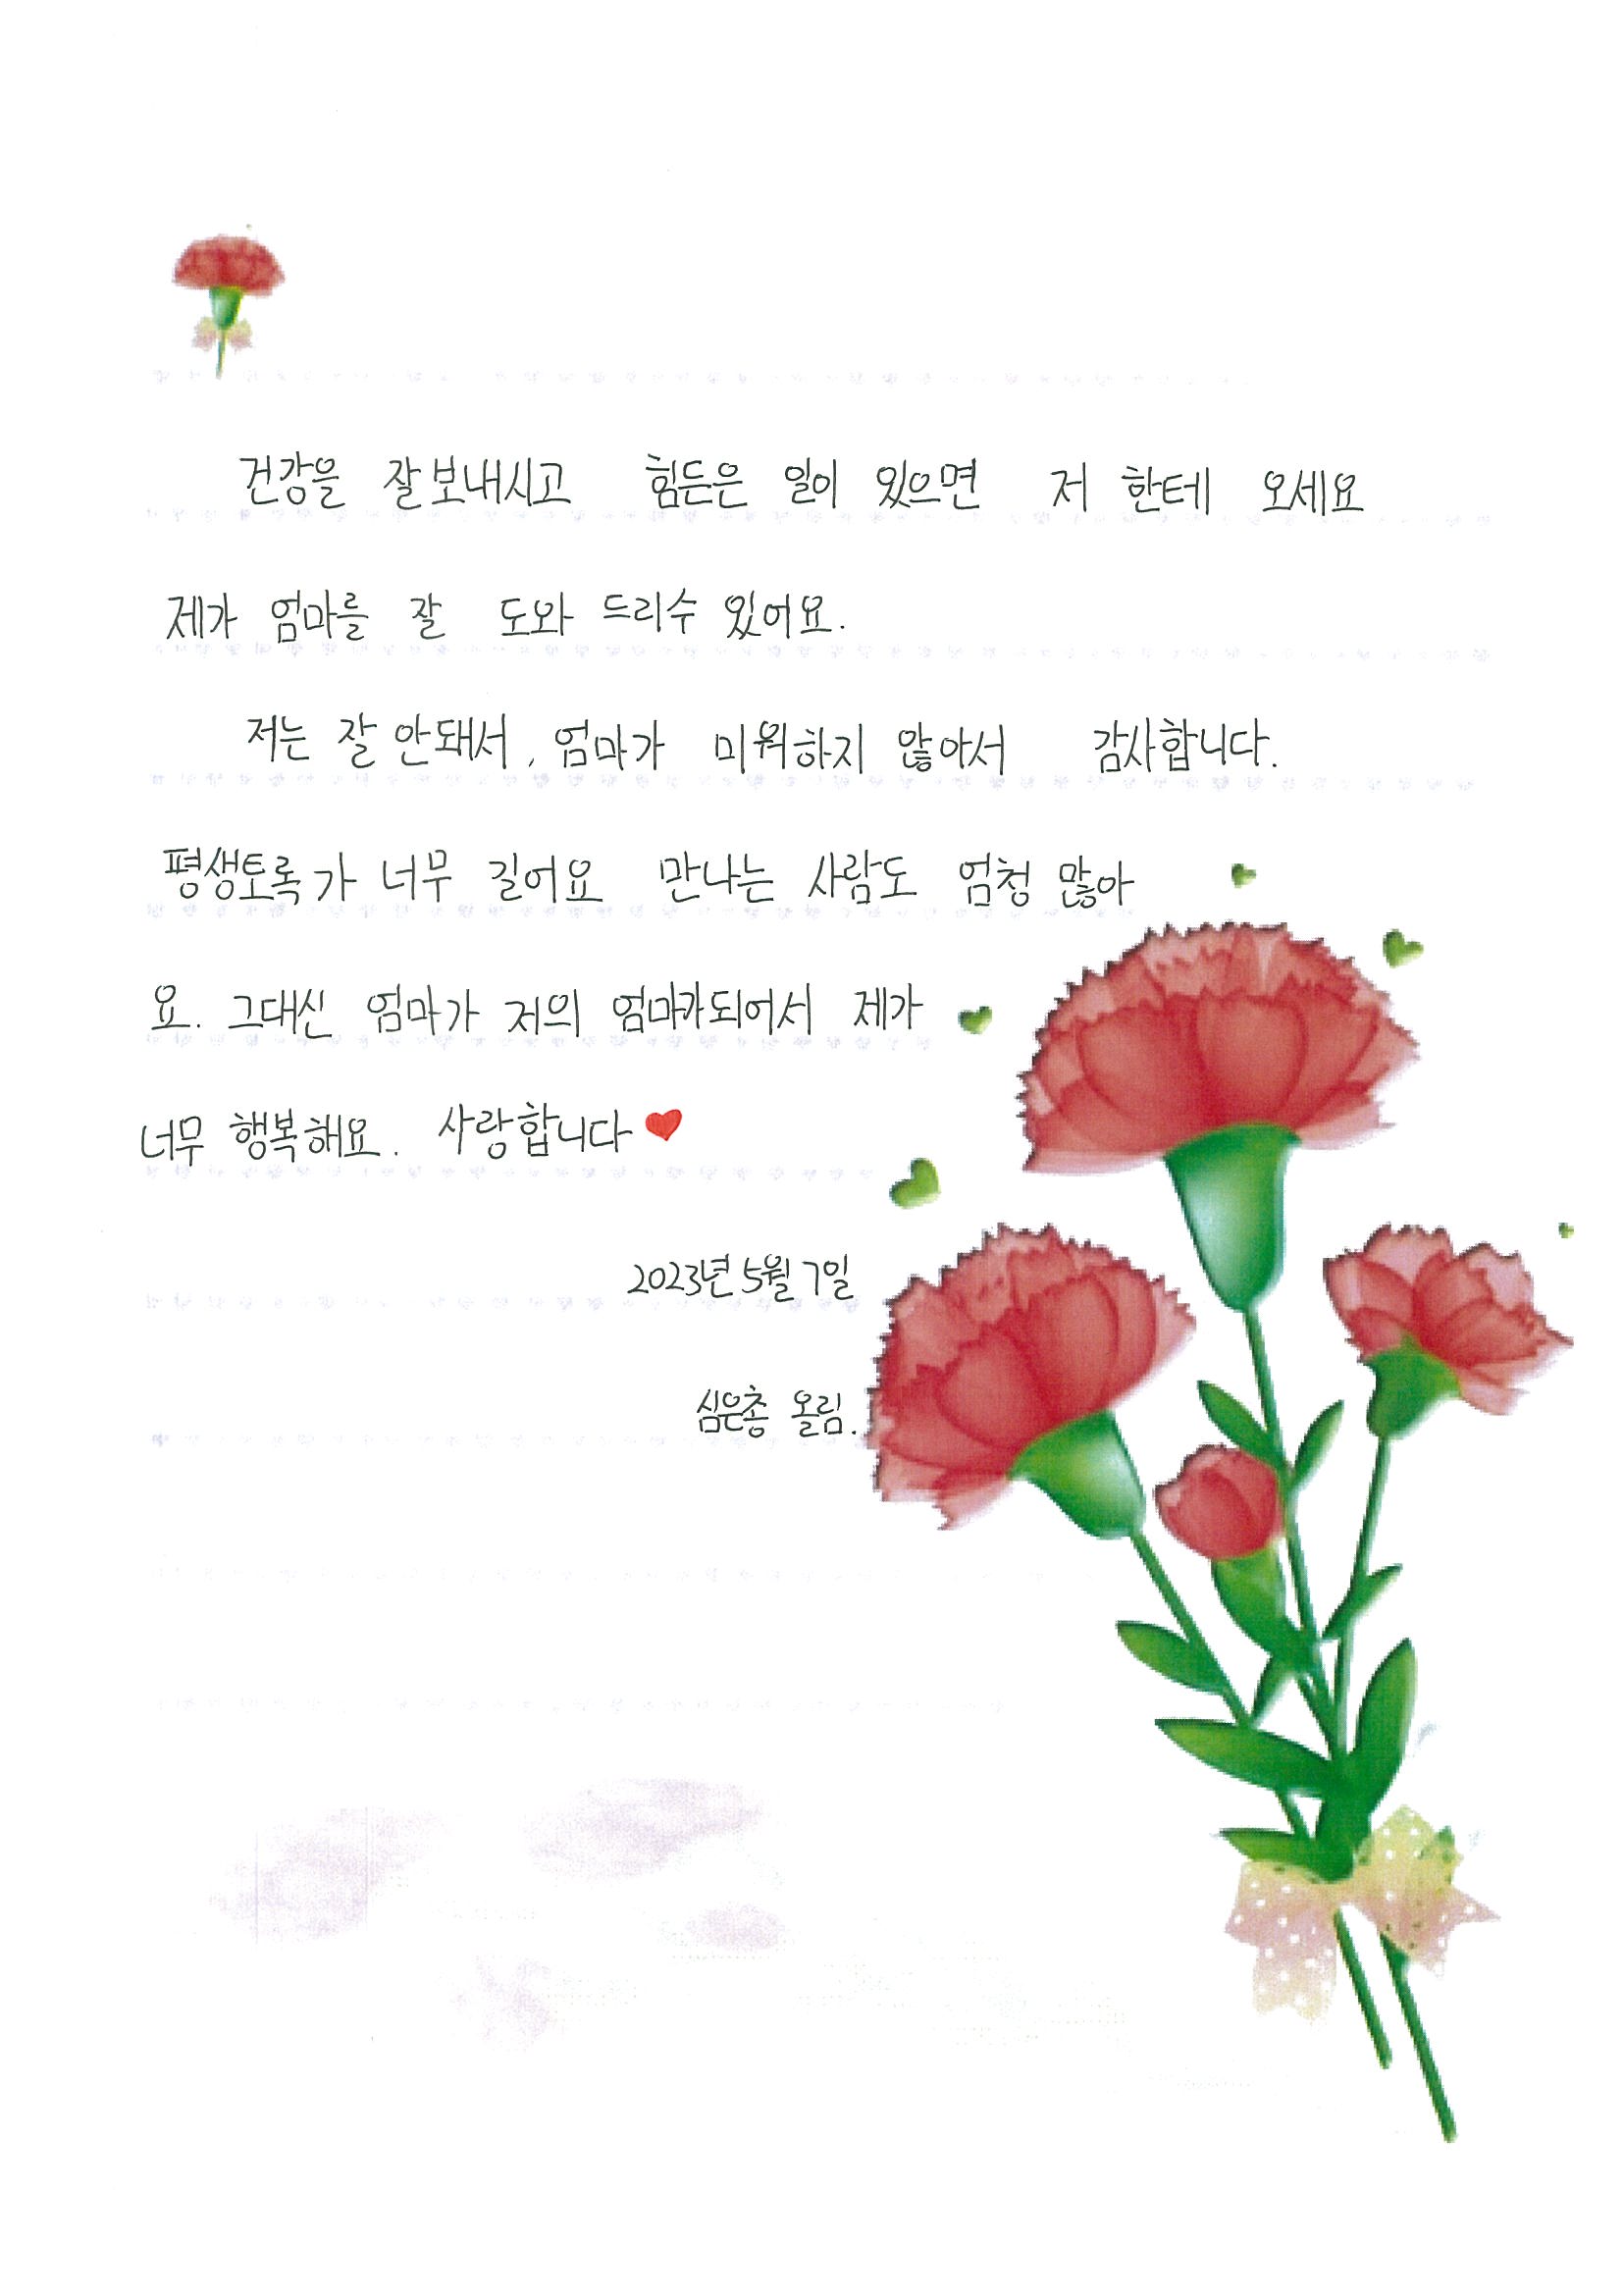 건강을 잘보내시고 힘든은 일이 있으면 저 한테 오세요
제가 엄마를 잘 도와 드리수 있어요.
저는 잘 안돼서, 엄마가 미워하지 않아서 감사합니다.
평생토록가 너무 길어요 만나는 사람도 엄청 많아
요. 그대신 엄마가 저의 엄마가되어서 제가
너무 행복해요. 사랑합니다
2023년 5월 7일
심은총 올림.